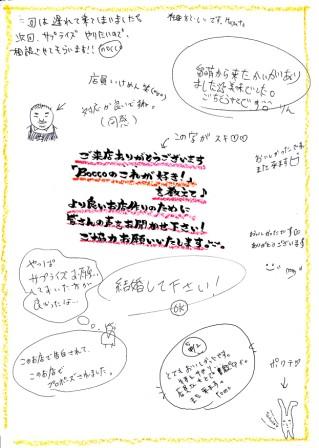 二回は遅れて来てしまいました
次回、サプライズやりたいので、
相談させてもらいます!!
留萌から来たかいがあり
ました。美味でした。
ごちそうさまです
店員いけめん笑
対応が良いで勝。
(同感)
この字がスキ♡♡
おいしかったです。
また来ます
ご来店ありがとうございます
「Boccoのこれが好き!」
を教えて♪
より良いお店作りのために
皆さんの声をお聞かせ下さい!
ご協力お願いいたします
おいしかったです
ありがとうございます
やっぱ
サプライズお願い
しておいた方が
良かったは…
結婚して下さい!
OK
このお店で告白されて、
このお店で
プロポーズされました。
とてもおいしかったです。
また来ます。
ポワテッ